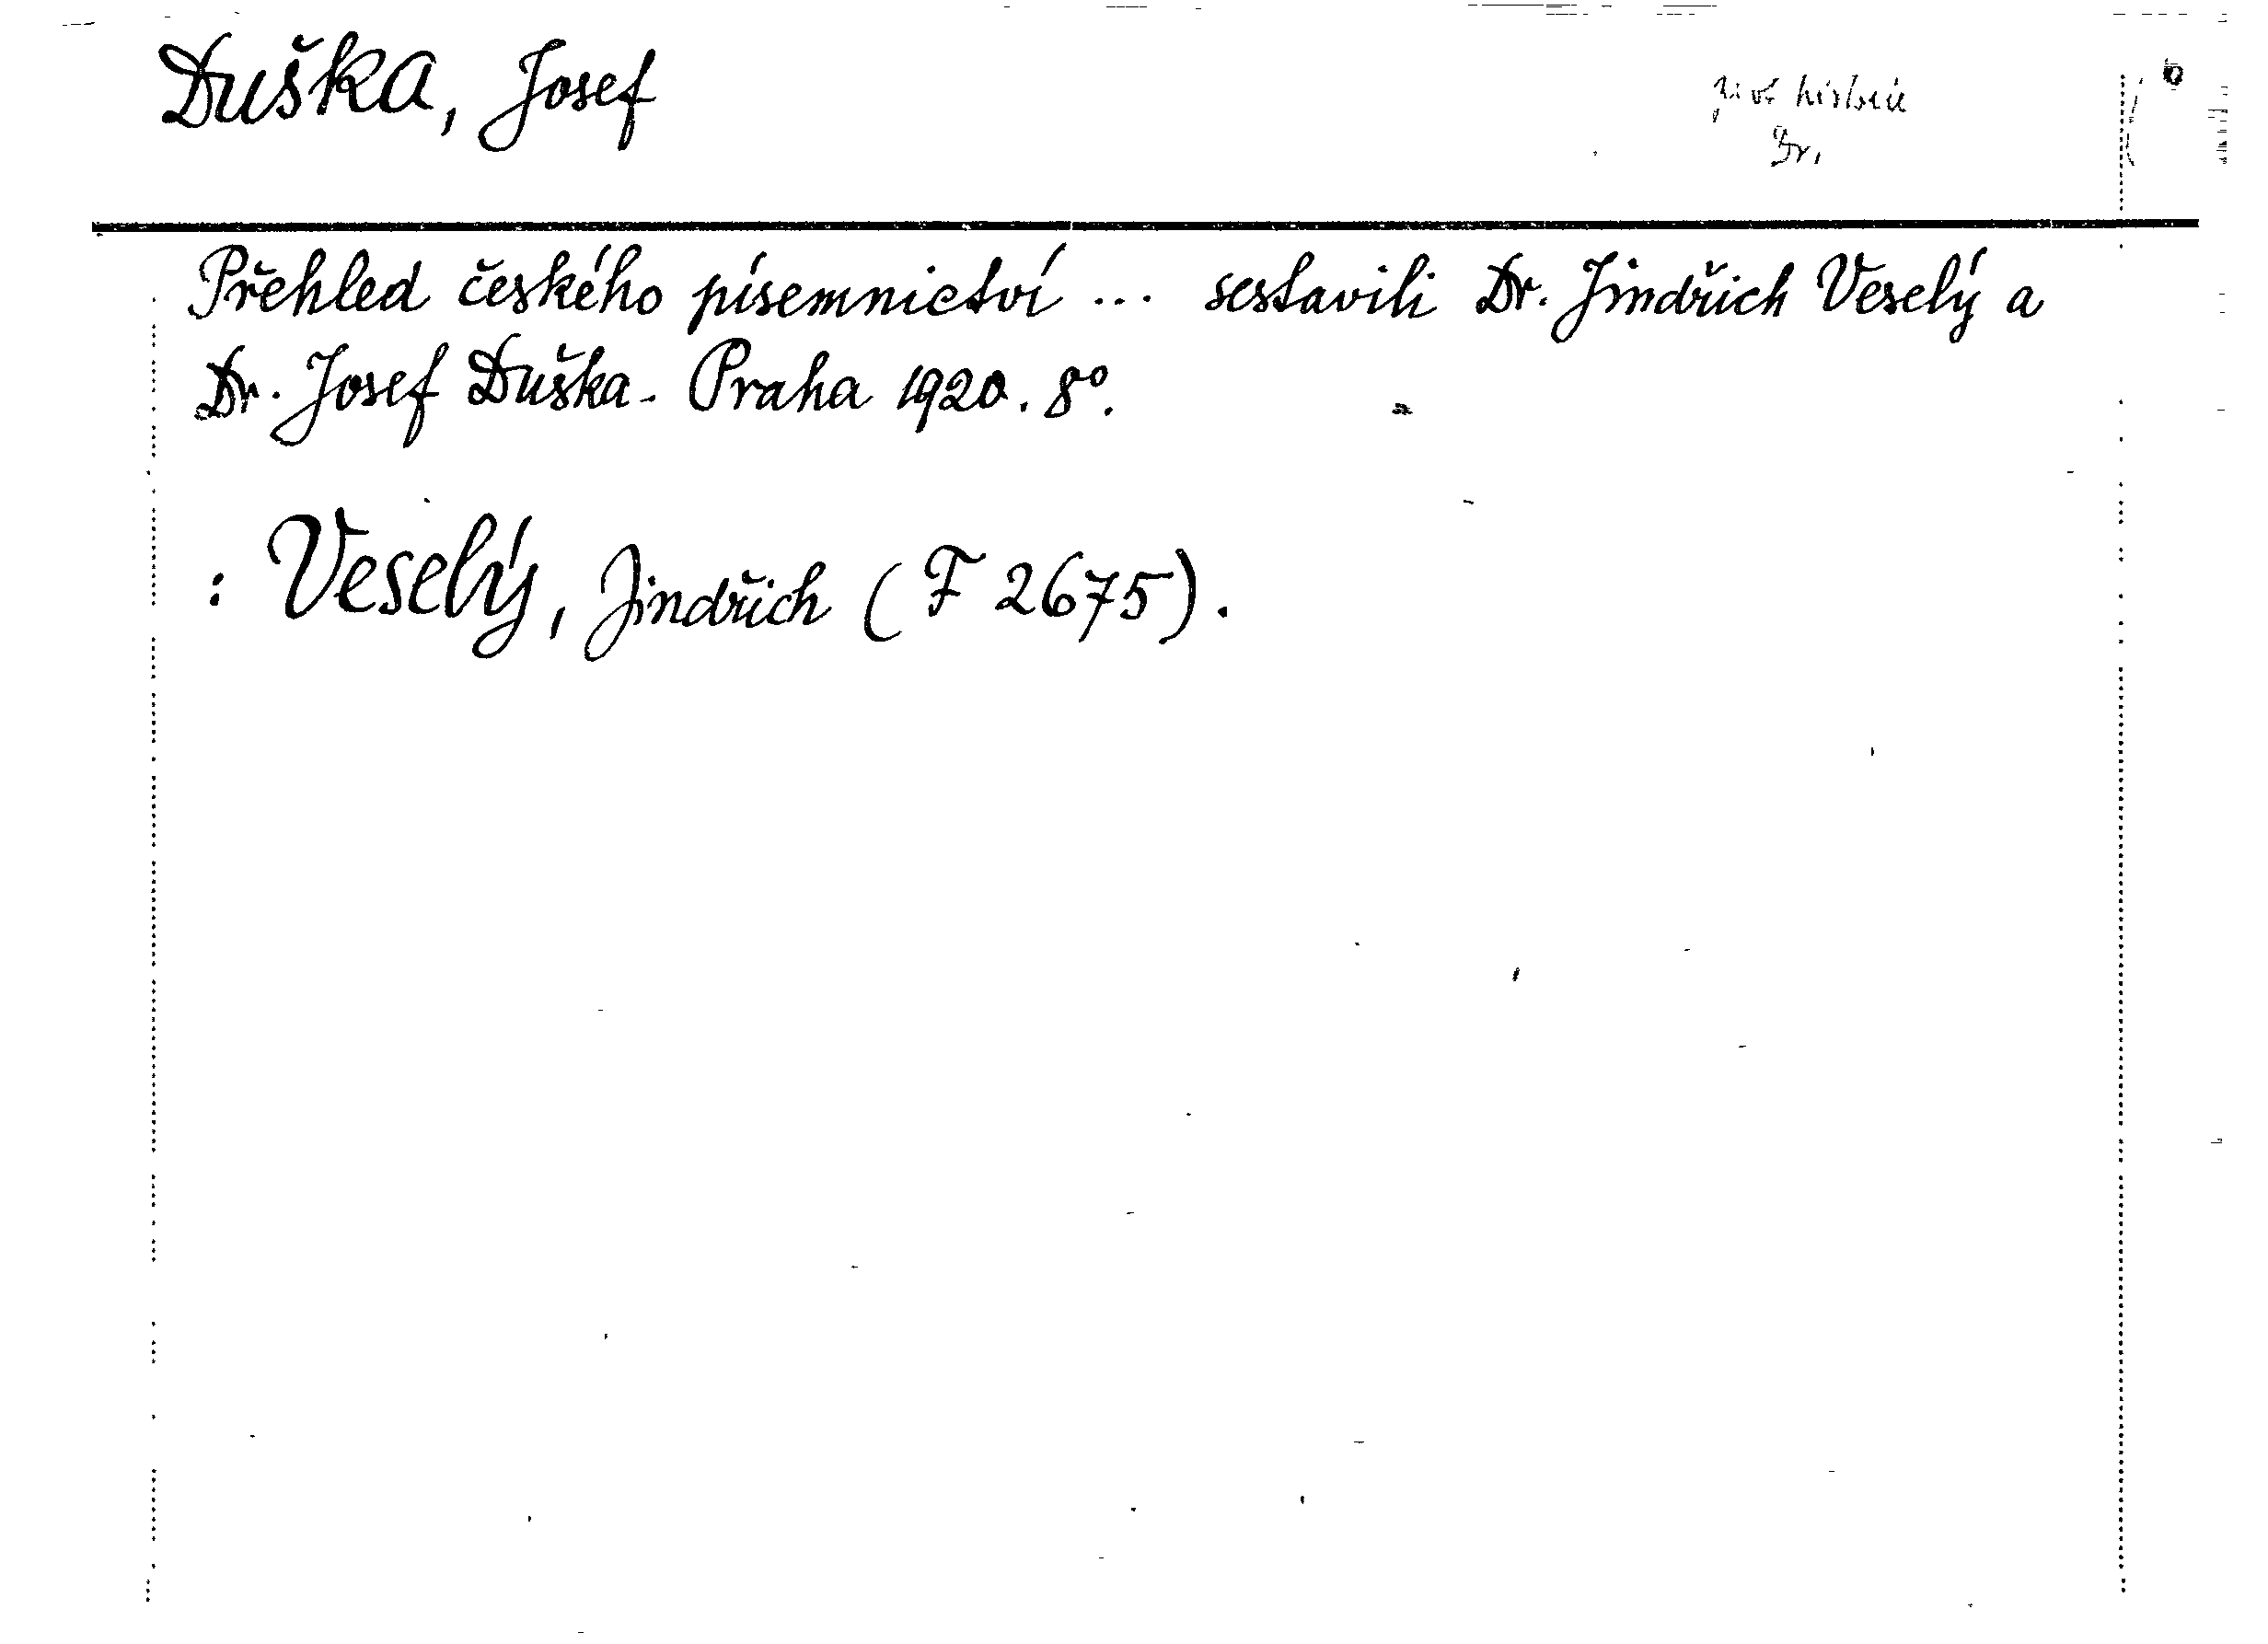 Duška, Josef
Přehled českého písemnictví ... sestavili Dr. Jindřich Veselý a
Dr. Josef Duška. Praha 1920. 8°.
: Veselý, Jindřich (F 2675).